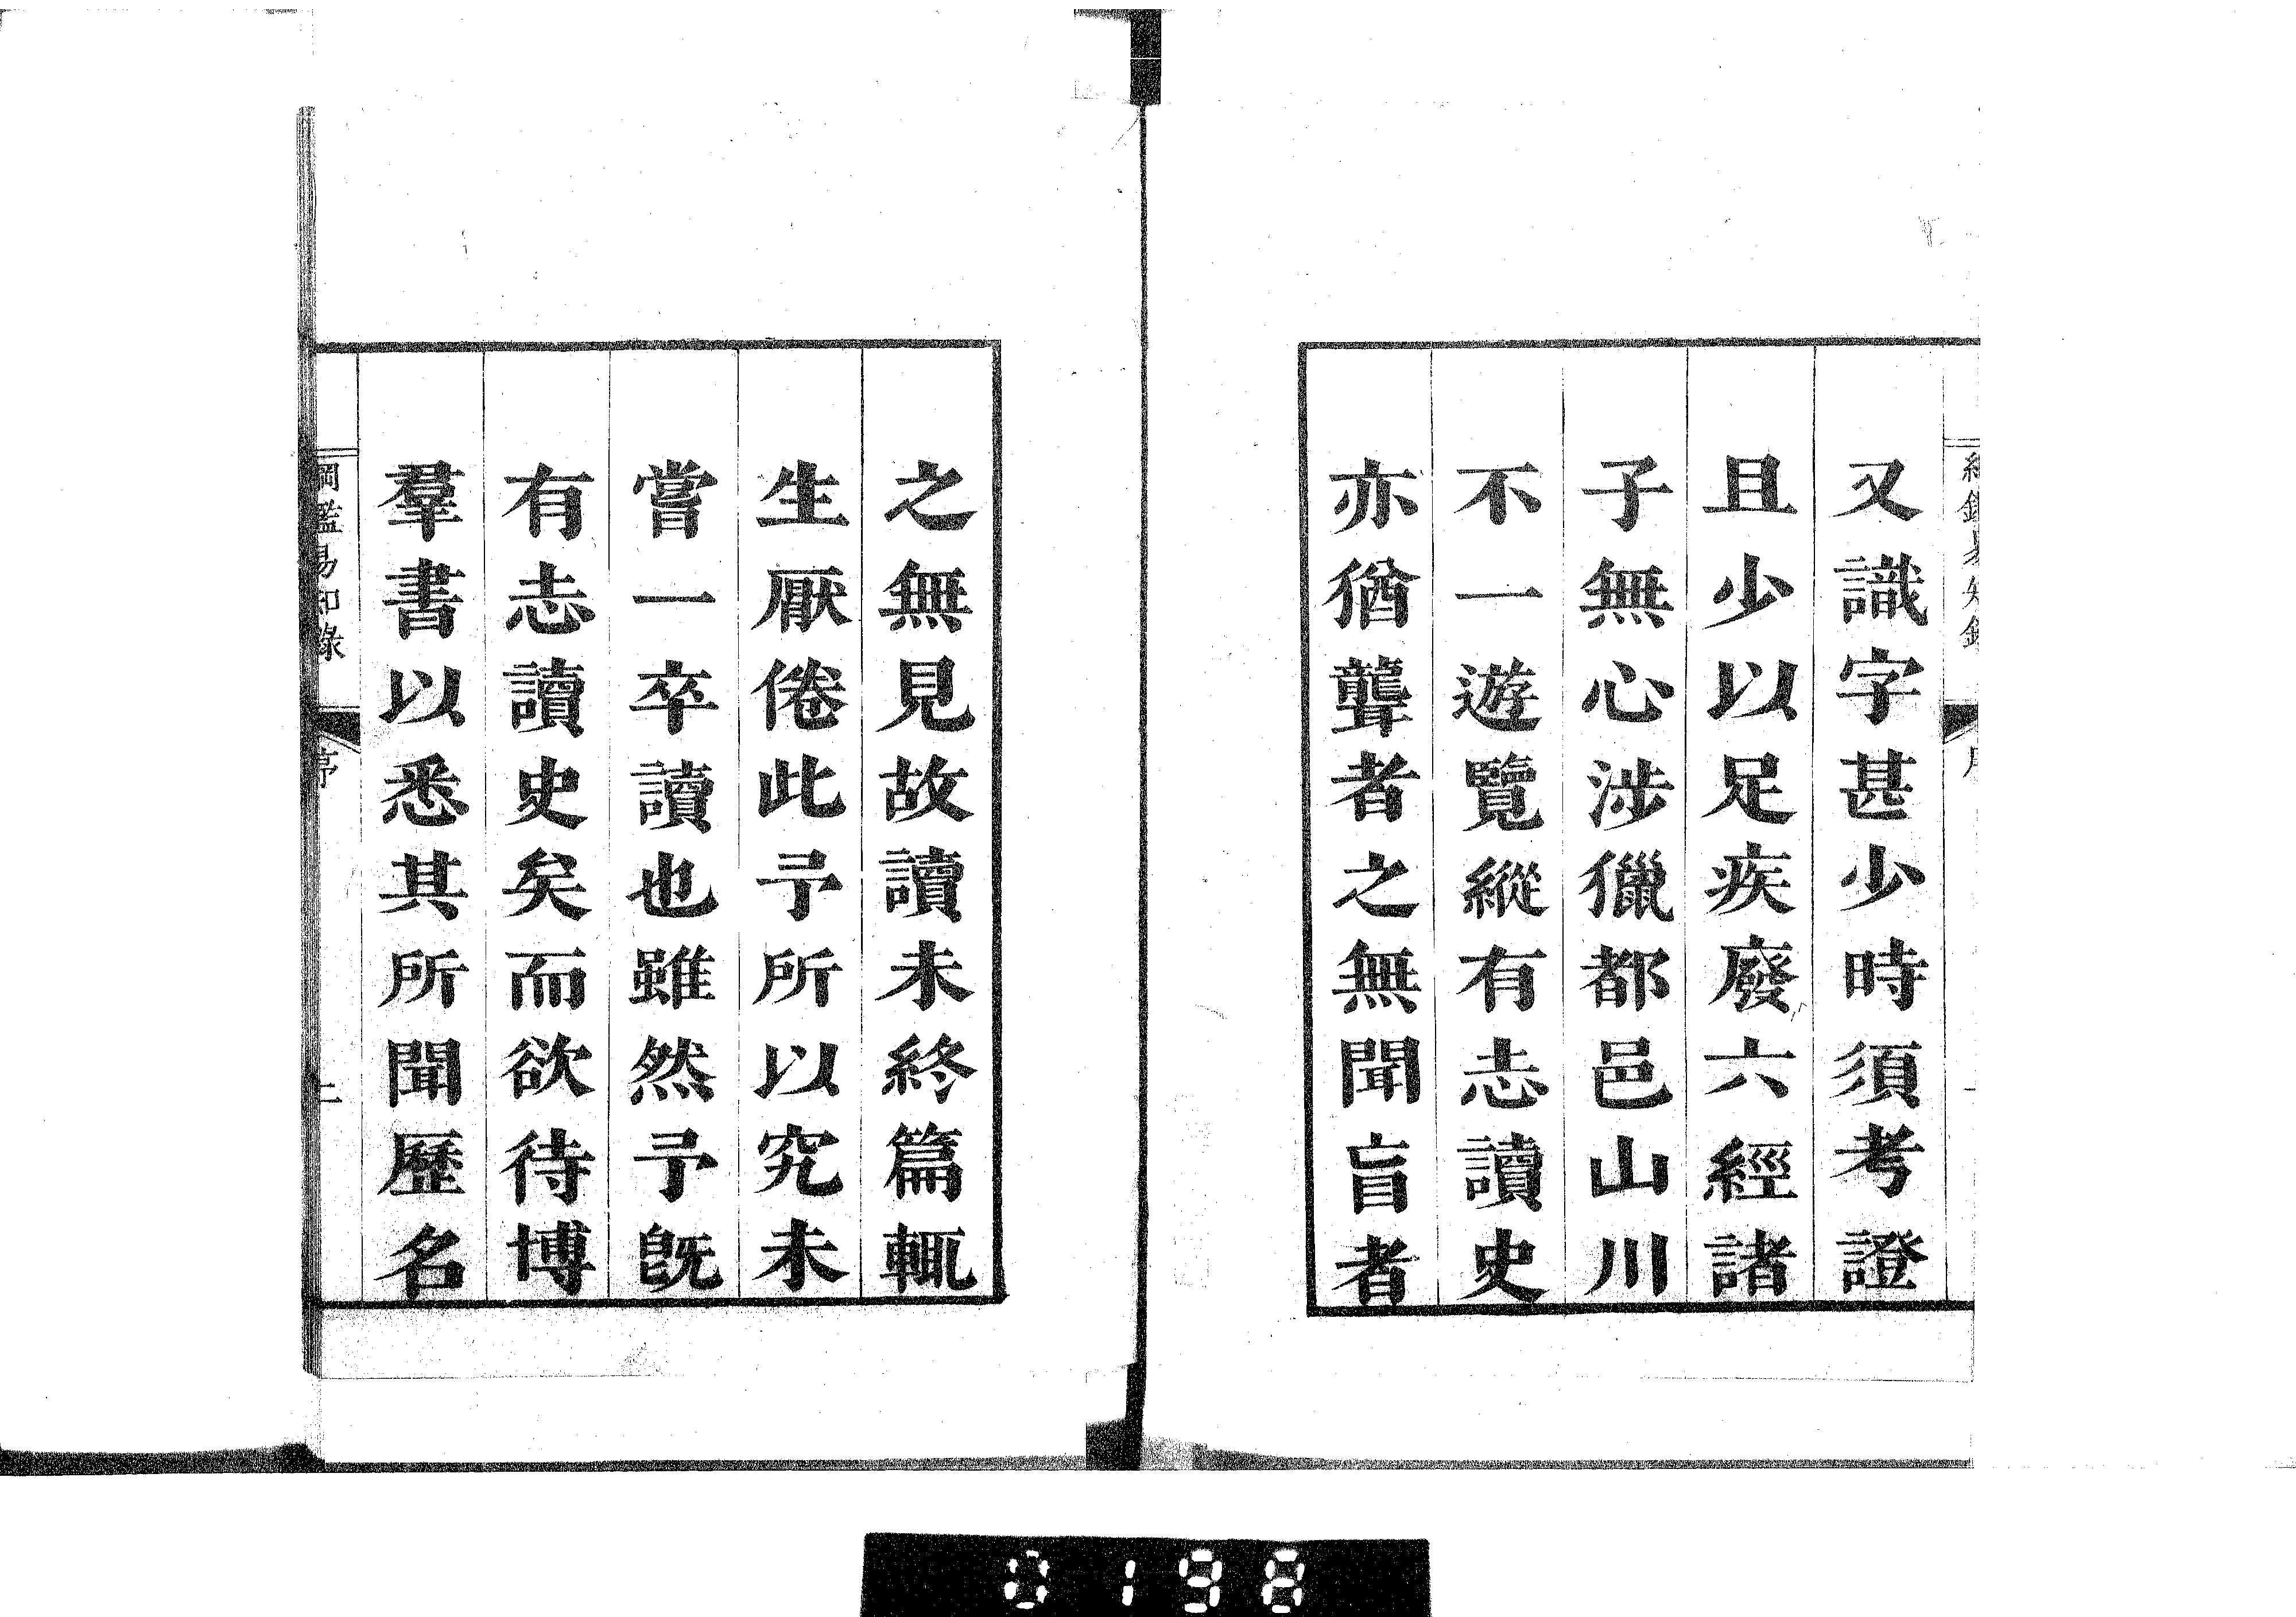 又識字甚少時須考證
且少以足疾廢六經諸
子無心涉獵都邑山川
不一遊覽縱有志讀史
亦猶聾者之無聞盲者
之無見故讀未終篇輒
生厭倦此予所以究未
嘗一卒讀也雖然予旣
有志讀史矣而欲待博
羣書以悉其所聞歷名
綱鑑易知錄
序
0198